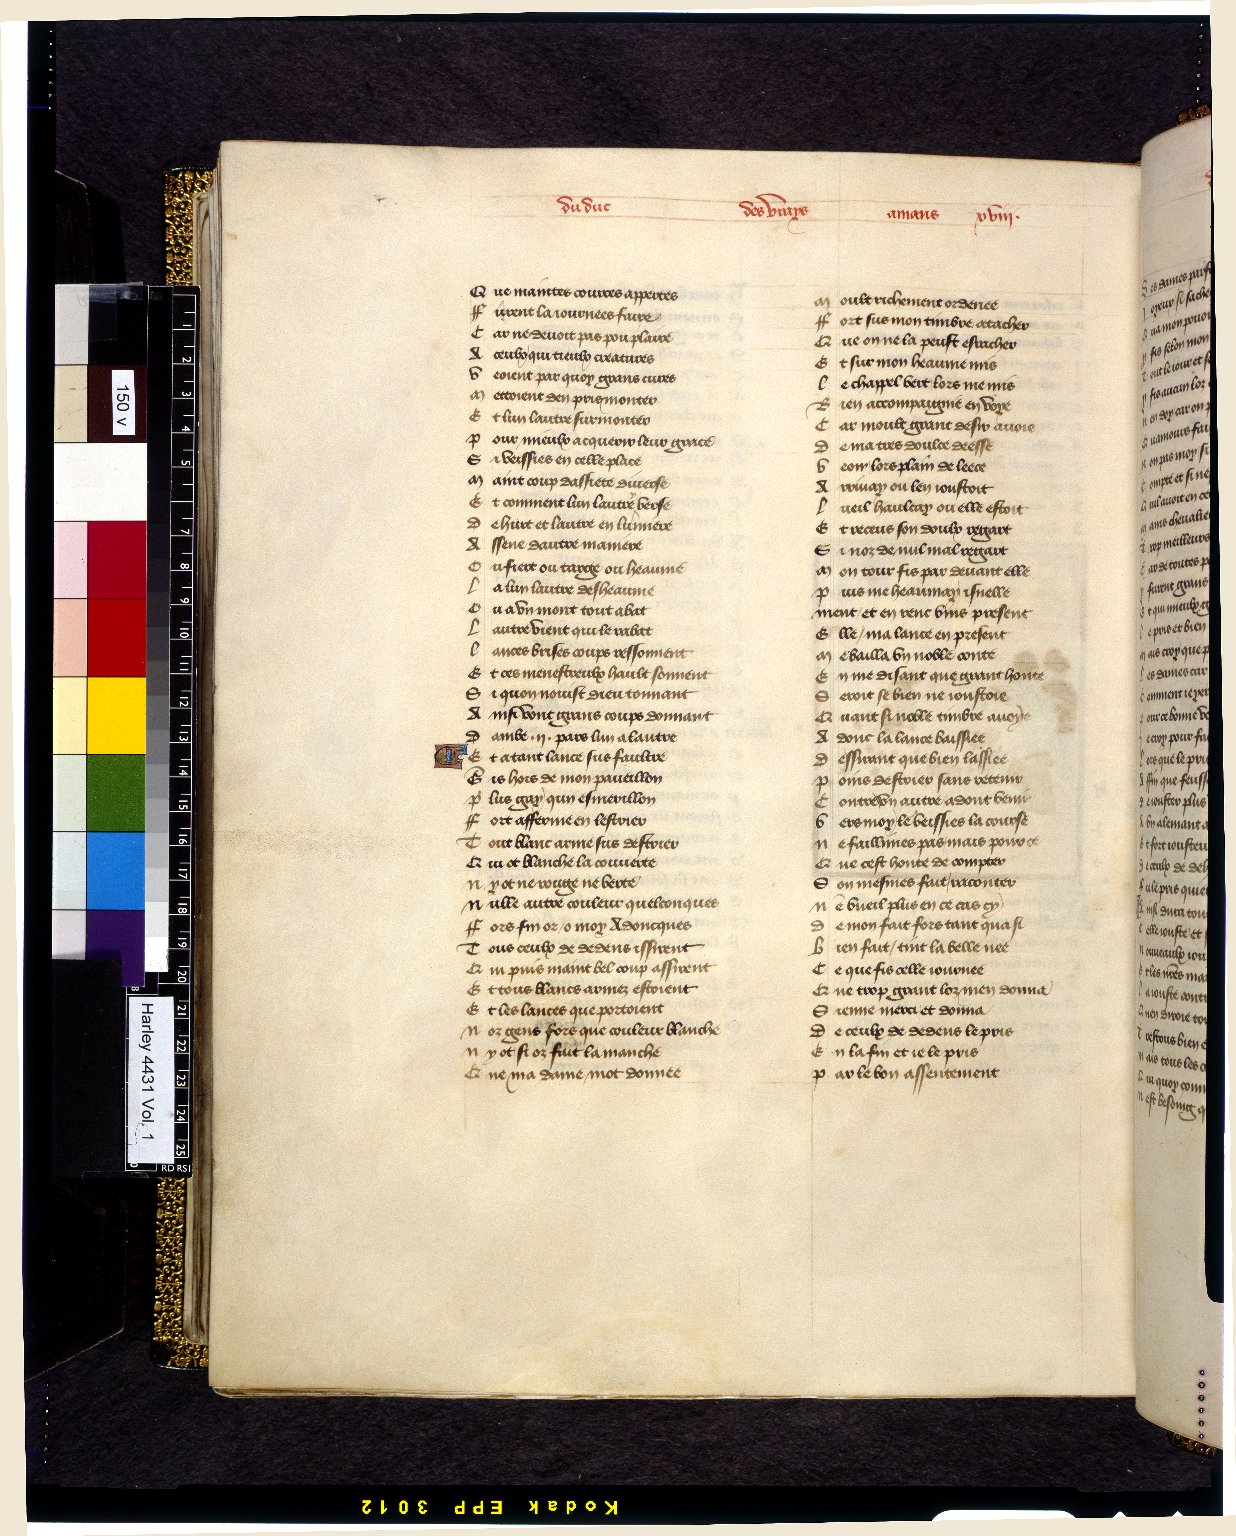 du duc des vrays amans xviii.
Que maintes courtes appertes
Ffurent la iournees faire
Car ne devoit pas pou plaire
A ceulx qui tieulx creatures
Veoient par quoy grans cures
Mettoient den pris monter
Et lun lautre surmonter
Pour mieulx acquerir leur grace
Si veissies en celle place
Maint coup dassiete diverse
Et comment lun lautre verse
De hurt et lautre en lumiere
Assene dautre maniere
Ou fiert ou targe ou heaume
La lun lautre desheaume
Ou a vn mont tout abat
Lautre vient qui le rabat
Lances brises coups ressonnent
Et ces menestreulx hault sonnent
Si quon nouist dieu tonnant
Ainsi vont grans coups donnant
Dambe .ii. pars lun a lautre
Et atant lance sus faultre
Gis hors de mon paveillon
Plus gay qun esmerillon
Ffort afferme en lestrier
Tout blanc arme sus destrier
Qui ot blanche la couverte
Ny ot ne rouge ne verte
Nulle autre couleur quelconques
Ffors fin or / o moy Adoncques
Tous ceulx de dedens issirent
Qui puis maint bel coup assirent
Et tous blancs armez estoient
Et les lances que portoient
Nor gens fors que couleur blanche
Ny ot si or fuit la manche
Que ma dame mot donnee
Moult richement ordenee
Ffort sus mon timbre atacher
Que on ne la peust esracher
Et sur mon heaume mis
Le chappel vert lors me mis
Bien accompaigné en voye
Car moult grant desir avoie
De ma tres doulce deesse
Veoir lors plain de leece
Arrivay ou len ioustoit
Lueil haulcay ou elle estoit
Et receus son doulx regart
Si noz de nul mal regart
Mon tour fis par devant elle
Puis me heaumay isnelle
ment et en renc vins present
Elle / ma lance en present
Me bailla vn noble conte
En me disant que grant honte
Seroit se bien ne ioustoie
Quant si noble timbre avoye
Adonc la lance baissiee
Dessirant que bien lassiee
Poins destrier sans retenir
Contre vn autre adont venir
Vers moy le veissies la course
Ne faillimes pas mais pource
Que cest honte de compter
Son mesmes fait / raconter
Ne vueil plus en ce cas cy
De mon fait fors tant quasi
Bien fait / tint la belle nee
Ce que fis celle iournee
Que trop grant loz men donna
Sienne merci et donna
De ceulx de dedens le pris
En la fin et ie le pris
Par le bon assentement
150 v
Harley 4431 Vol. 1
Kodak EPP 3012